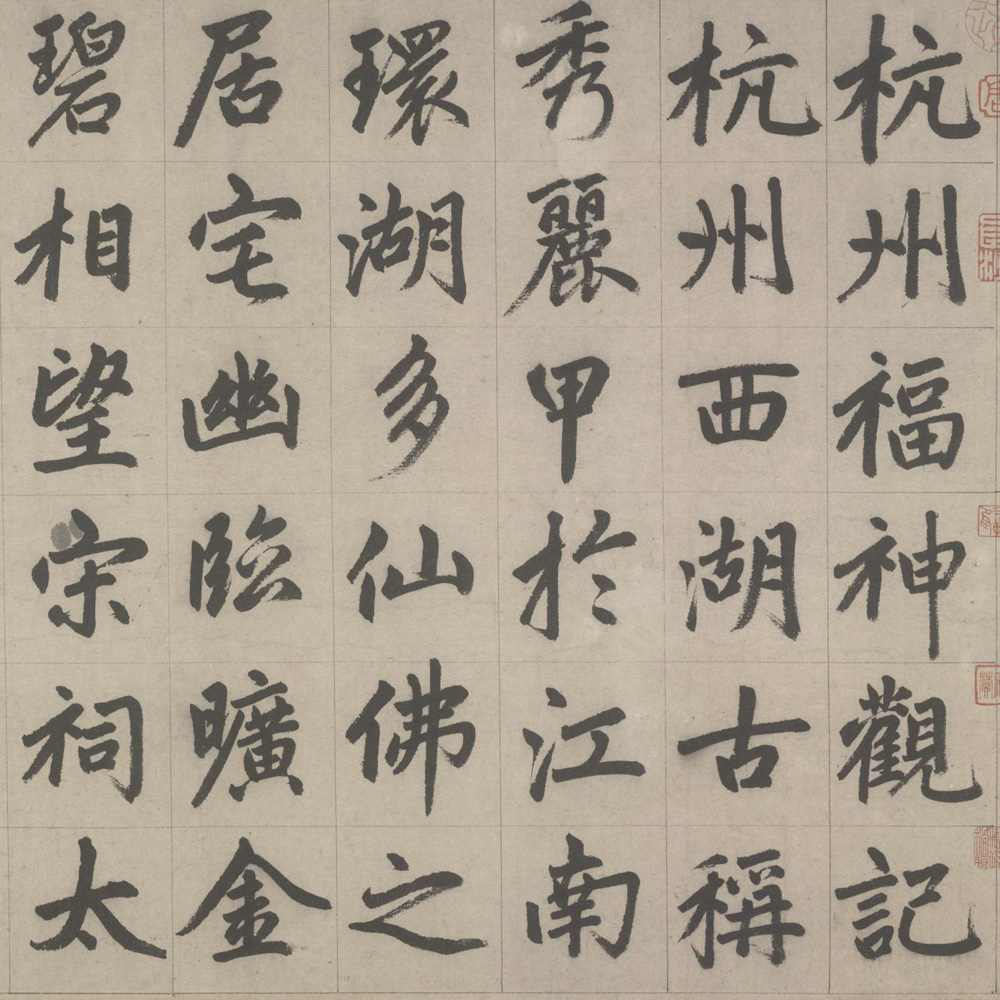 杭州福神觀記
杭州西湖古稱
秀麗甲於江南
環湖多仙佛之
居宅幽臨曠金
碧相望宗祠太